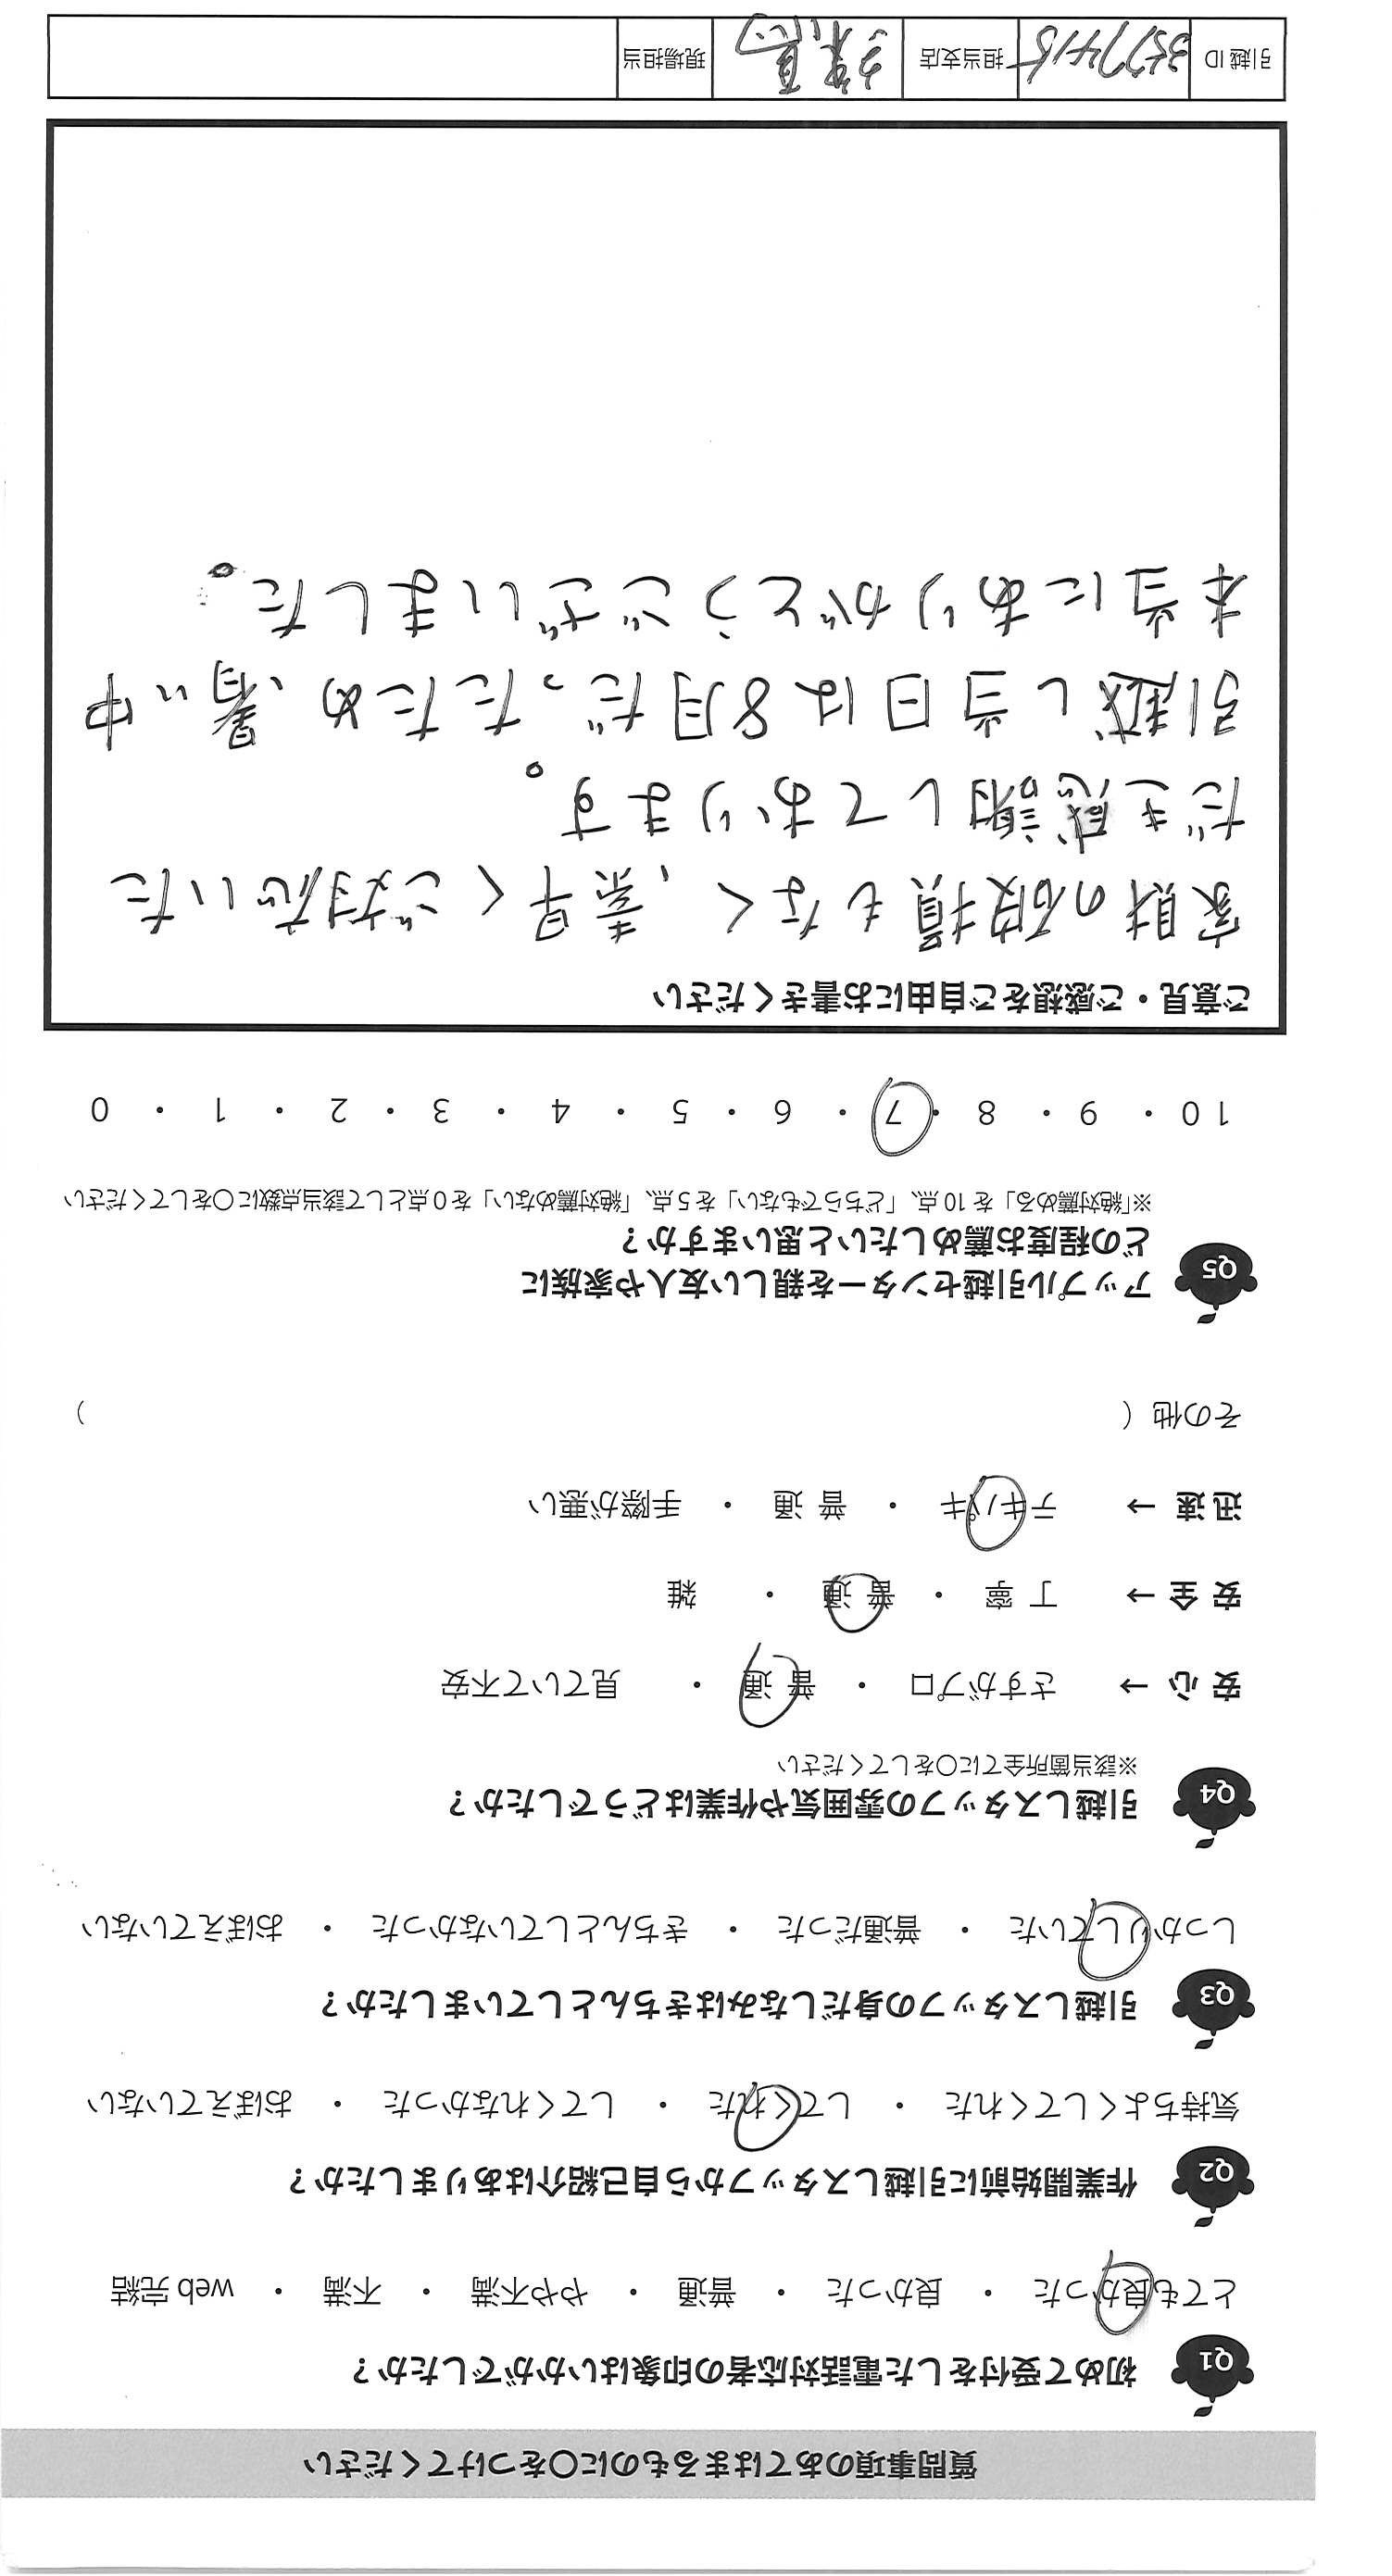 質問事項のあてはまるものに〇をつけてください
Q1 初めて受付をした電話対応者の印象はいかがでしたか？
とても良かった ・ 良かった ・ 普通 ・ やや不満 ・ 不満 ・ web 完結
Q2 作業開始前に引越しスタッフから自己紹介はありましたか？
気持ちよくしてくれた ・ してくれた ・ してくれなかった ・ おぼえていない
Q3 引越しスタッフの身だしなみはきちんとしていましたか？
しっかりしていた ・ 普通だった ・ きちんとしていなかった ・ おぼえていない
Q4 引越しスタッフの雰囲気や作業はどうでしたか？
※該当箇所全てに〇をしてください
安 心 → さすがプロ ・ 普 通 ・ 見ていて不安
安 全 → 丁 寧 ・ 普 通 ・ 雑
迅 速 → テキパキ ・ 普 通 ・ 手際が悪い
その他（ ）
Q5 アップル引越センターを親しい友人や家族に
どの程度お薦めしたいと思いますか？
※「絶対薦める」を 10 点、「どちらでもない」を 5 点、「絶対薦めない」を 0 点として該当点数に〇をしてください
10 ・ 9 ・ 8 ・ 7 ・ 6 ・ 5 ・ 4 ・ 3 ・ 2 ・ 1 ・ 0
ご意見・ご感想をご自由にお書きください
家財の破損もなく、素早くご対応いた
だき感謝しております。
引越し当日は8月だったため、暑い中
本当にありがとうございました。
引越 ID 3577415 担当支店 現場担当